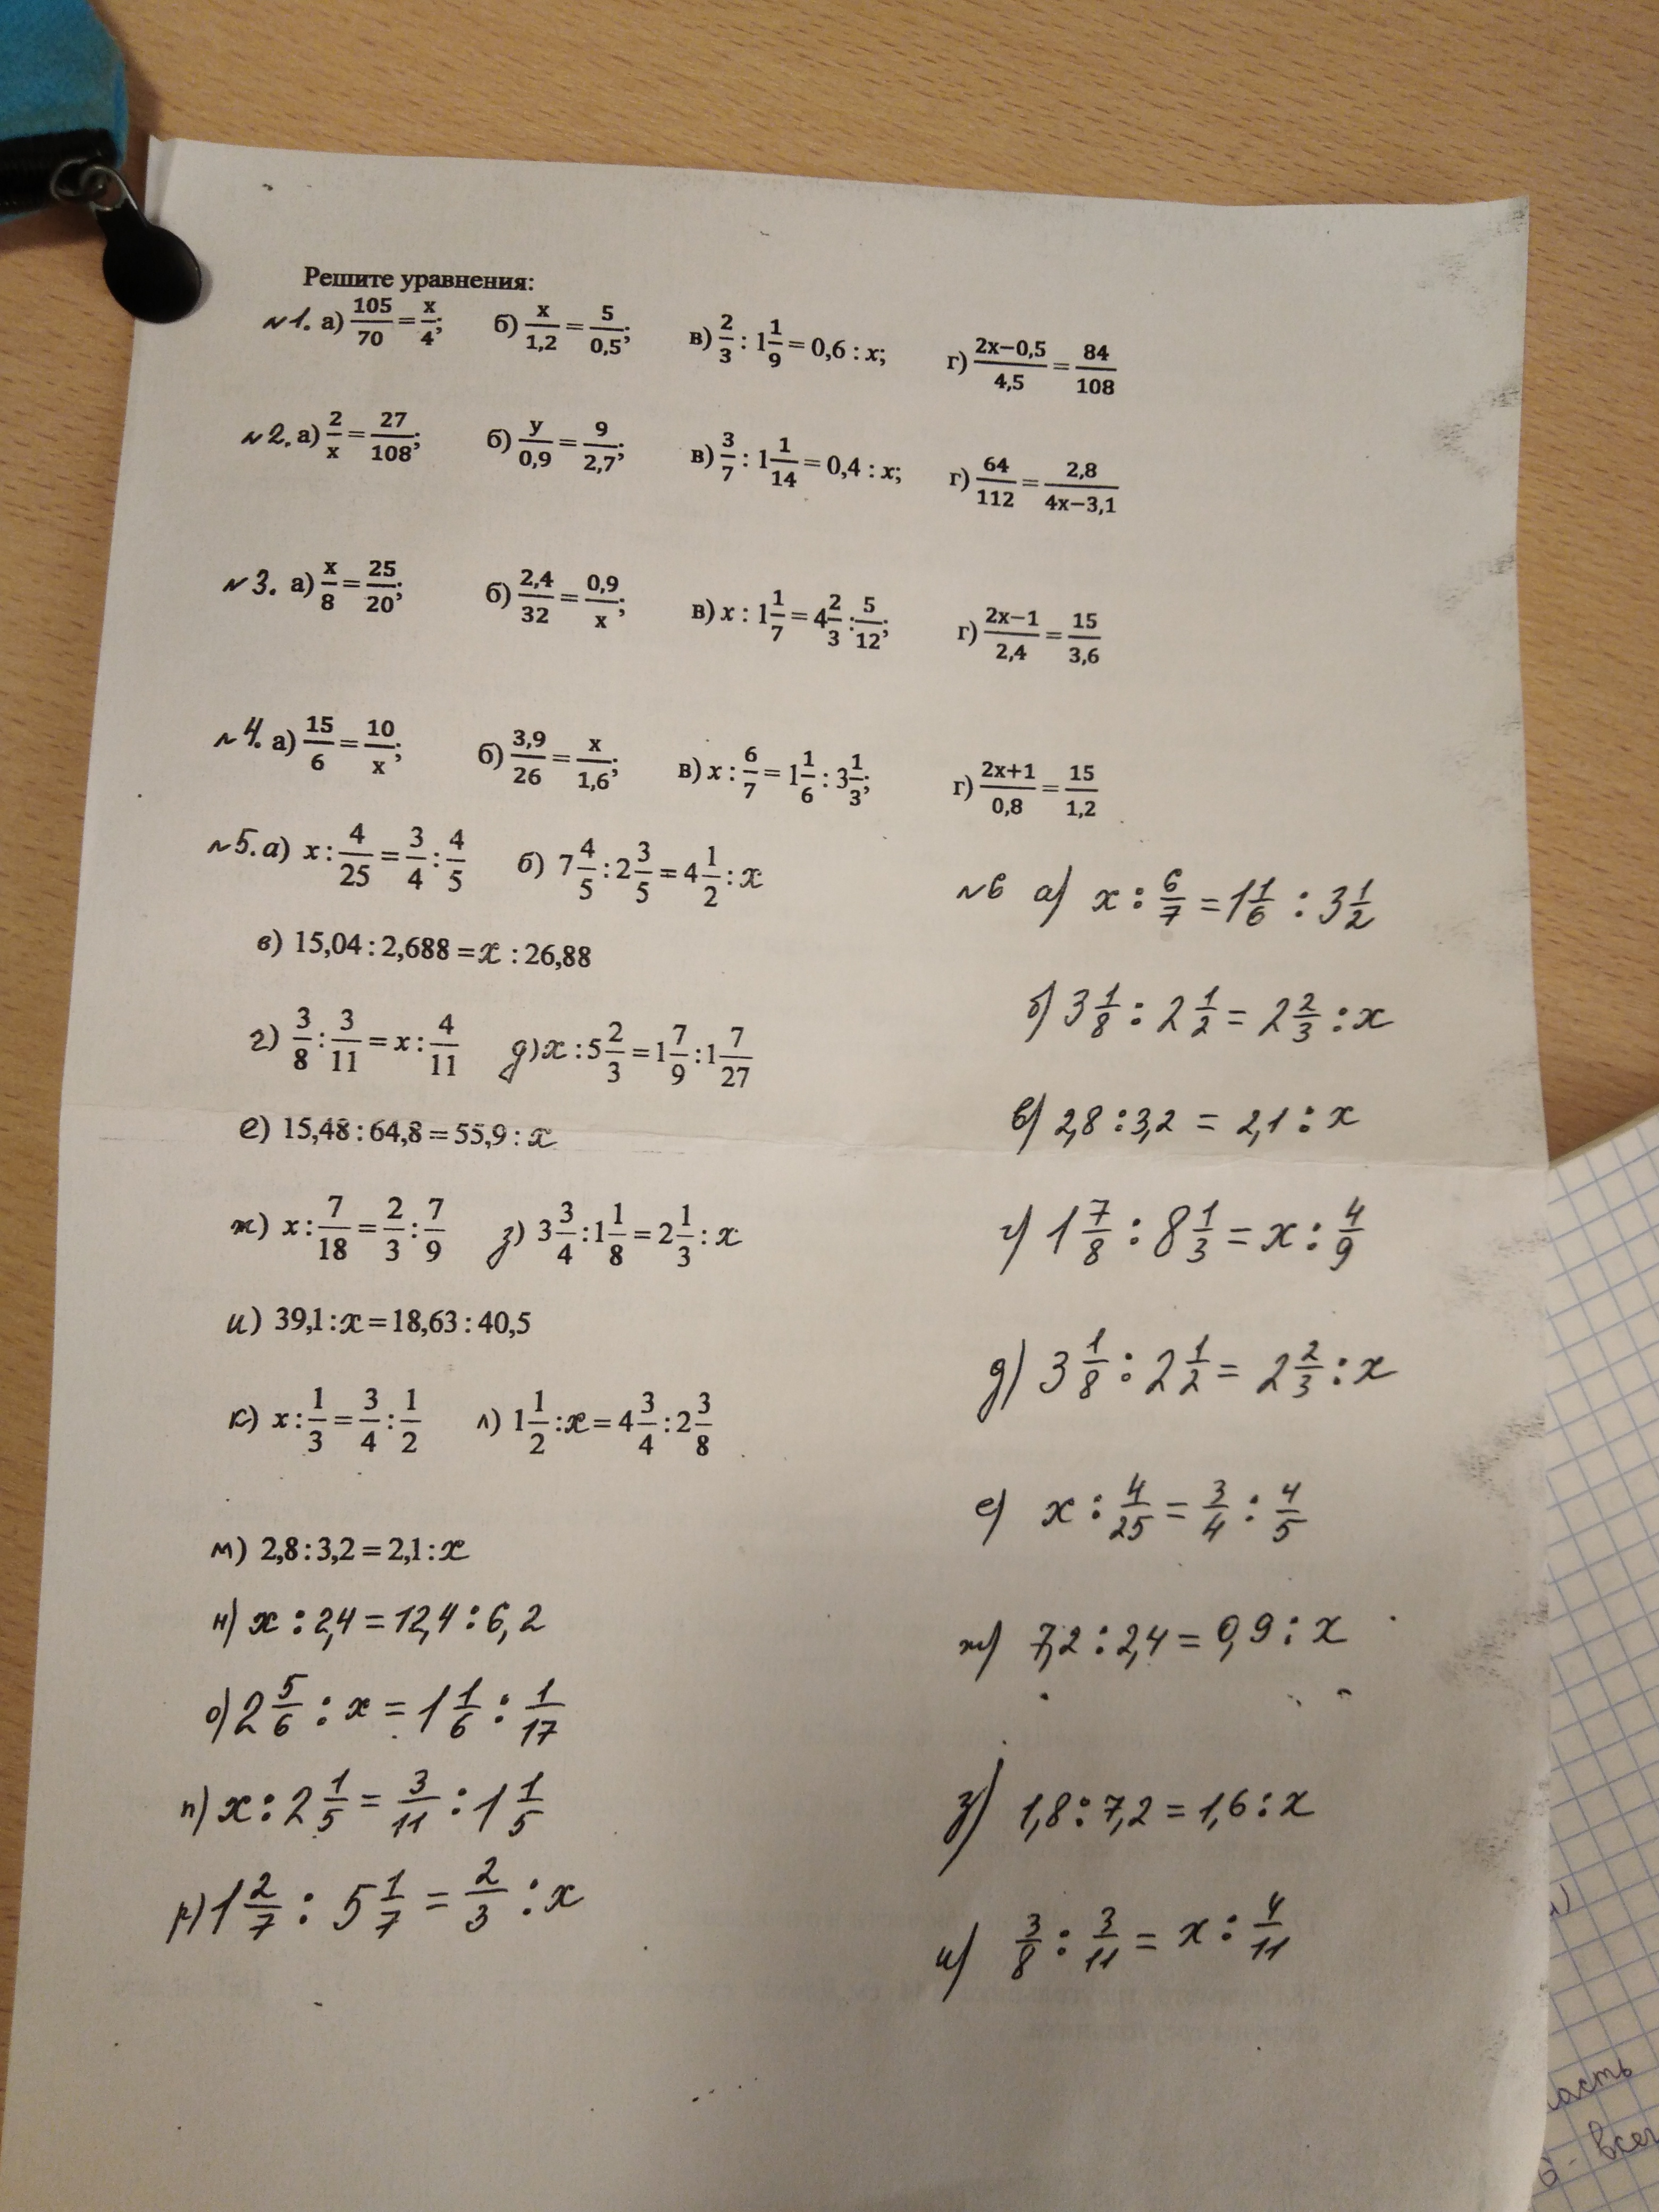 Решите уравнения:
№1. а) 105/70 = x/4; б) x/1,2 = 5/0,5; в) 2/3 : 1 1/9 = 0,6 : x; г) (2x−0,5)/4,5 = 84/108
№2. а) 2/x = 27/108; б) y/0,9 = 9/2,7; в) 3/7 : 1 1/14 = 0,4 : x; г) 64/112 = 2,8/(4x−3,1)
№3. а) x/8 = 25/20; б) 2,4/32 = 0,9/x; в) x : 1 1/7 = 4 2/3 : 5/12; г) (2x−1)/2,4 = 15/3,6
№4. а) 15/6 = 10/x; б) 3,9/26 = x/1,6; в) x : 6/7 = 1 1/6 : 3 1/3; г) (2x+1)/0,8 = 15/1,2
№5. а) x : 4/25 = 3/4 : 4/5 б) 7 4/5 : 2 3/5 = 4 1/2 : x
в) 15,04 : 2,688 = x : 26,88
г) 3/8 : 3/11 = x : 4/11 д) x : 5 2/3 = 1 7/9 : 1 7/27
е) 15,48 : 64,8 = 55,9 : x
ж) x : 7/18 = 2/3 : 7/9 з) 3 3/4 : 1 1/8 = 2 1/3 : x
и) 39,1 : x = 18,63 : 40,5
к) x : 1/3 = 3/4 : 1/2 л) 1 1/2 : x = 4 3/4 : 2 3/8
м) 2,8 : 3,2 = 2,1 : x
н) x : 2,4 = 12,4 : 6,2
о) 2 5/6 : x = 1 1/6 : 1/17
п) x : 2 1/5 = 3/11 : 1 1/5
р) 1 2/7 : 5 1/7 = 2/3 : x
№6 а) x : 6/7 = 1 1/6 : 3 1/2
б) 3 1/8 : 2 1/2 = 2 2/3 : x
в) 2,8 : 3,2 = 2,1 : x
г) 1 7/8 : 8 1/3 = x : 4/9
д) 3 1/8 : 2 1/2 = 2 2/3 : x
е) x : 4/25 = 3/4 : 4/5
ж) 7,2 : 2,4 = 0,9 : x
з) 1,8 : 7,2 = 1,6 : x
и) 3/8 : 3/11 = x : 4/11